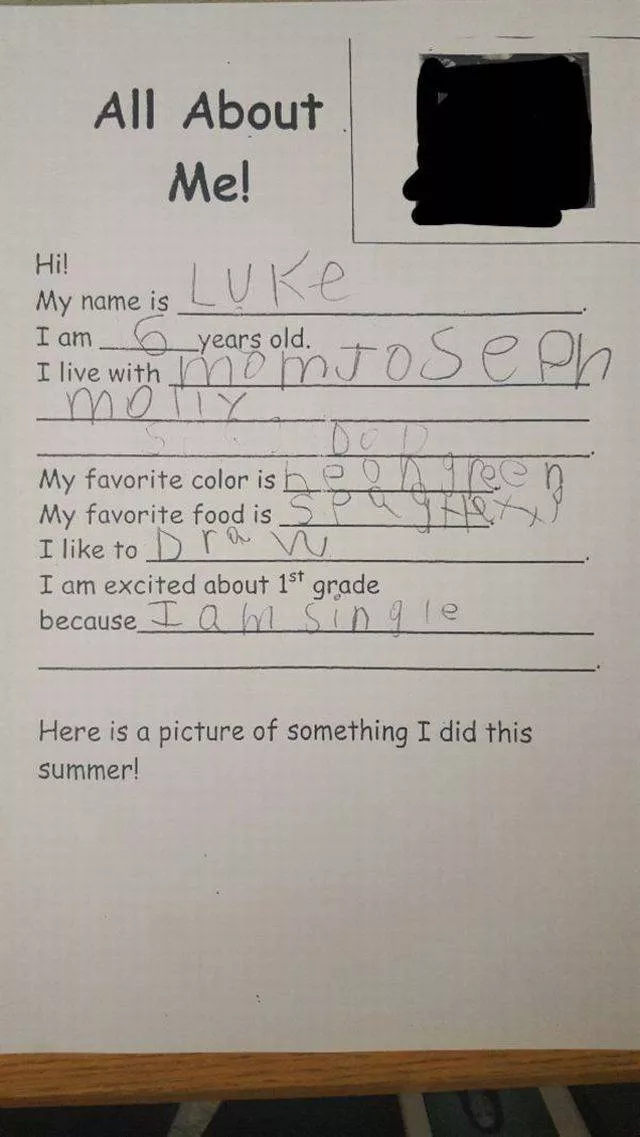 All About
Me!
Hi!
My name is LUKe.
I am 6 years old.
I live with mom JOSePh
mollY
DOD.
My favorite color is neongreen
My favorite food is
I like to Draw.
I am excited about 1st grade
because I am single
Here is a picture of something I did this
summer!